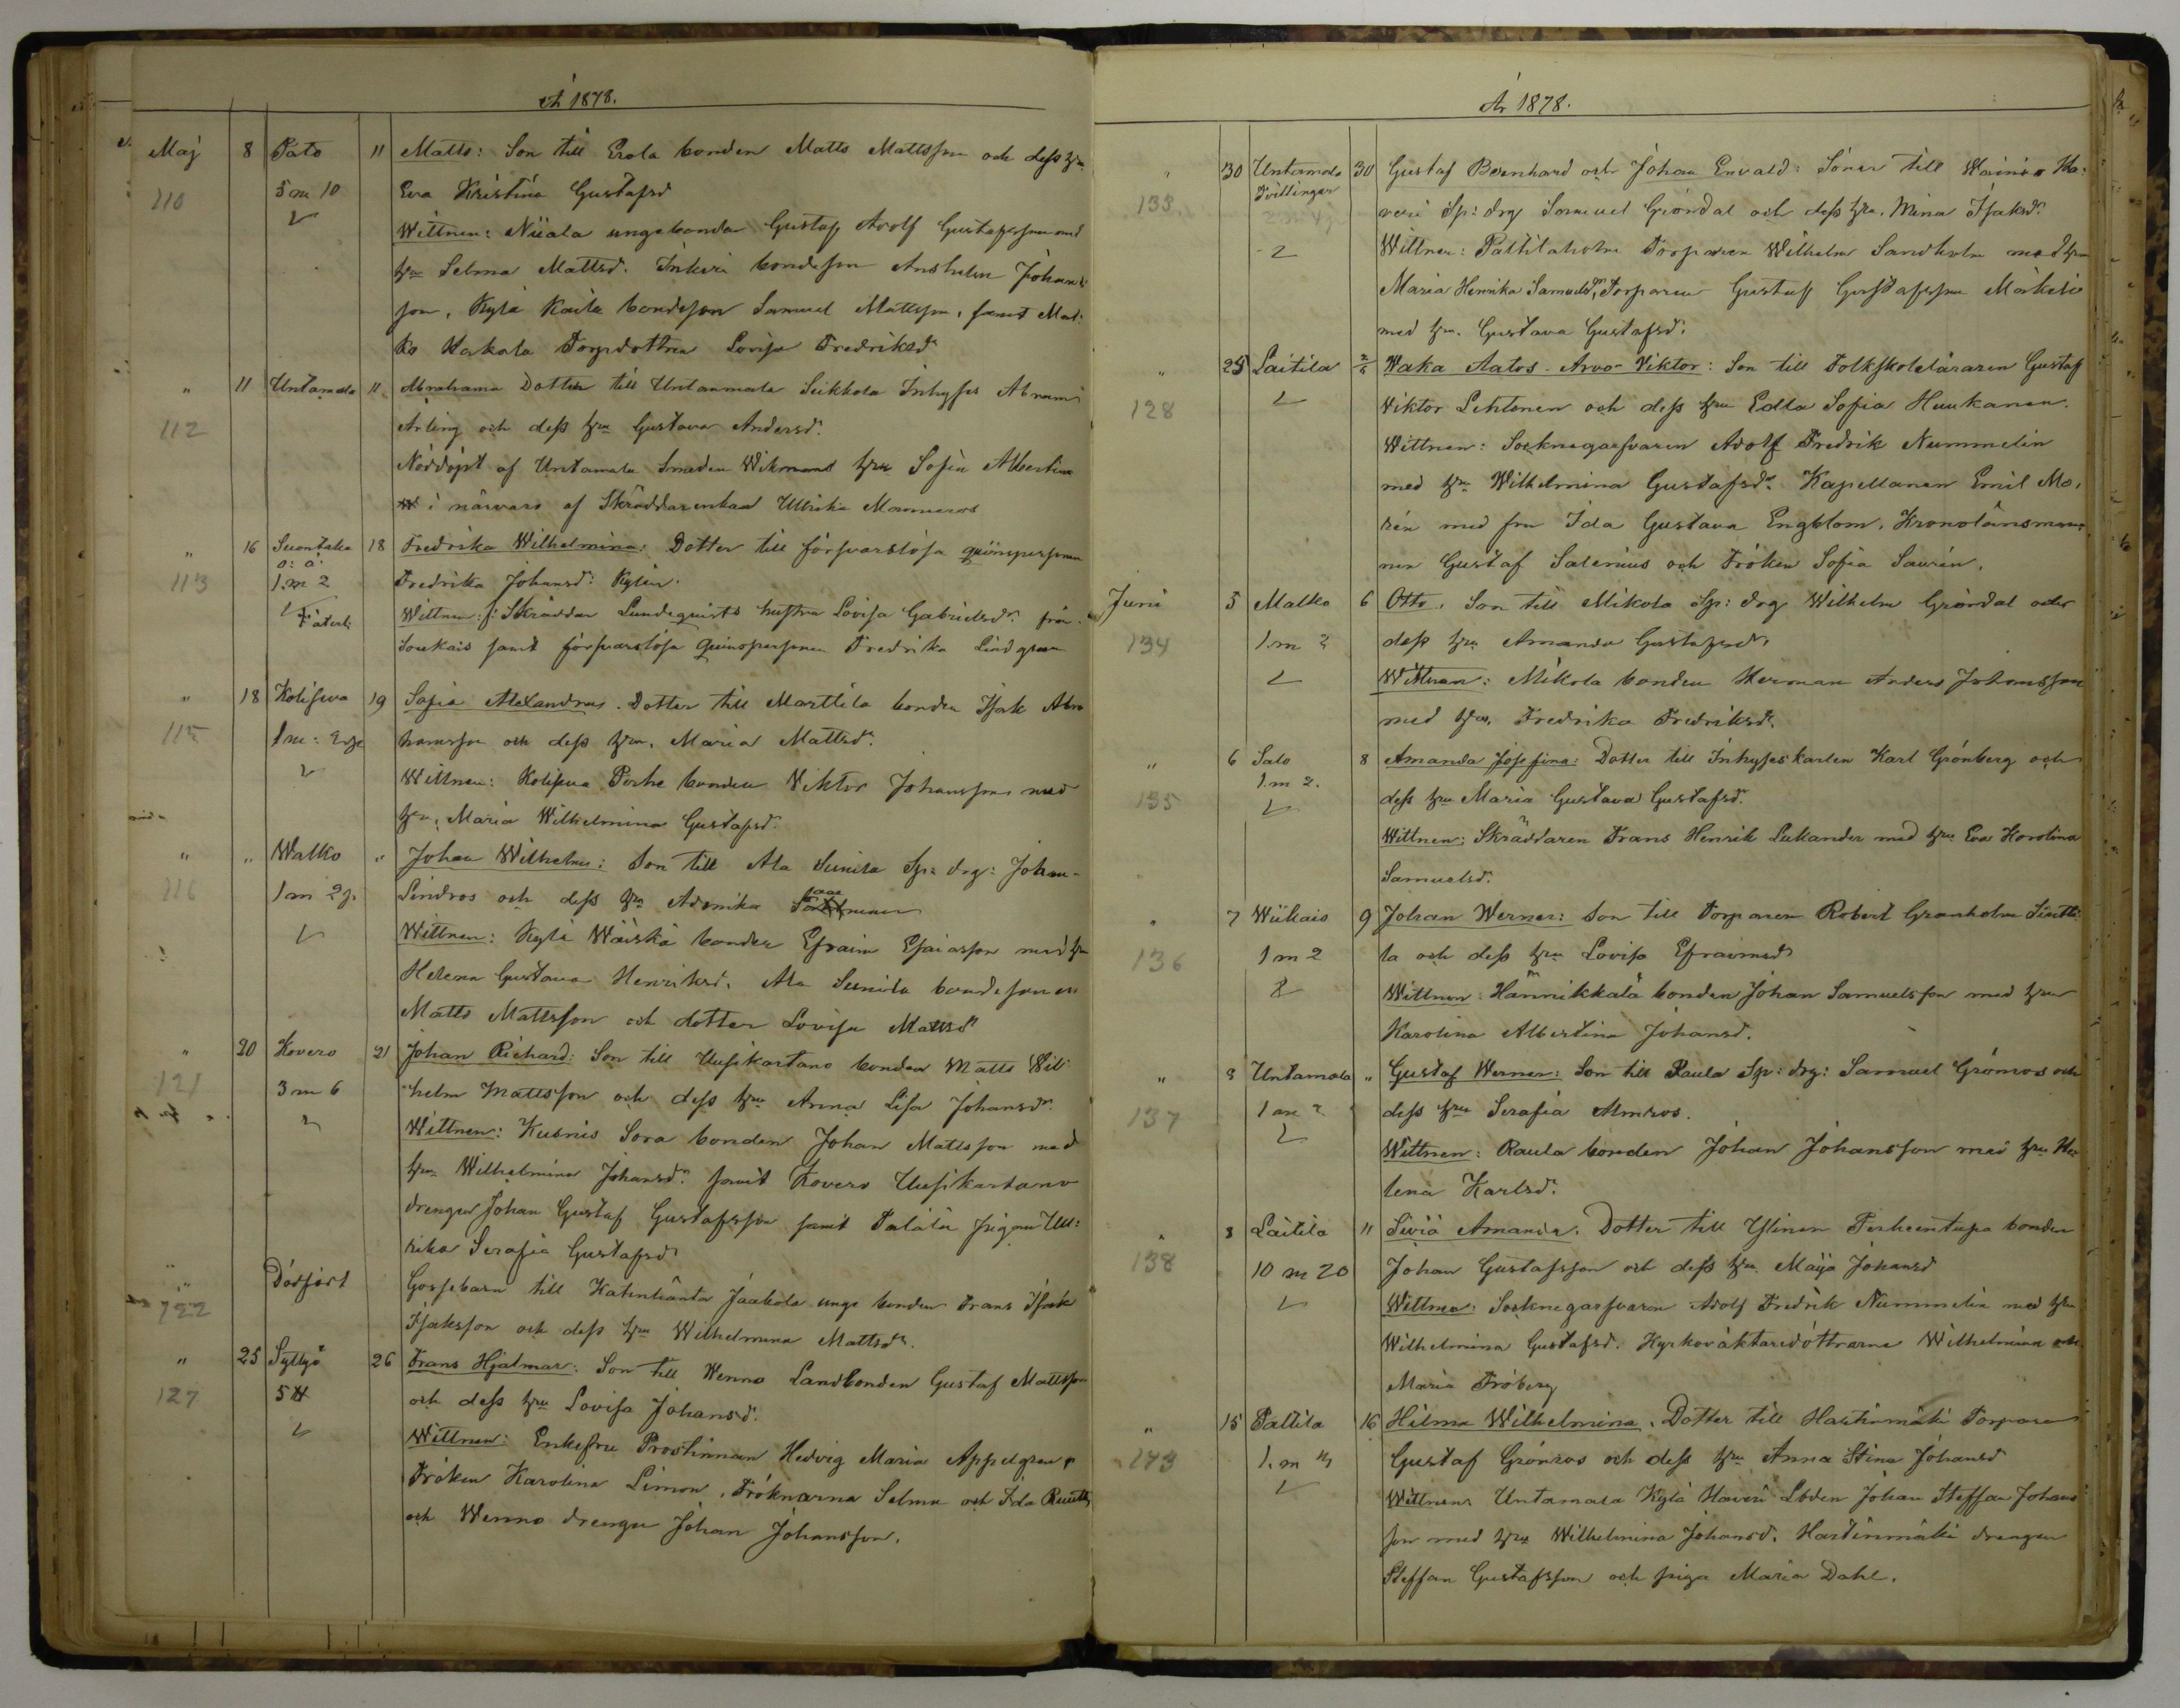 År 1878.
Maj 8 Päto 11 Matts: Son till Erola bonden Matts Mattsson och dess hru
110 5 m 10 Eva Kristina Gustafsd
Wittnen: Niiala unge bonden Gustaf Adolf Gustafsson med
hru Selma Mattsd. Inkeri bondeson Anshelm Johans
son, Kylä Kaila bondeson Samuel Mattsson, samt Mal:
ko Uskala Torpdottren Lovisa Fredriksd
" 11 Untamala 11 Abrahama Dotter till Untammala Seikkola Inhyses Abram
112 Arling och dess hru Gustava Andersd.
Nöddöpt af Untamala Smeden Wikmans hru Sofia Albertina
i närvaro af Skräddarenkan Ullrika Manneros
" 16 Suontaka 18 Fredrika Wilhelmina: Dotter till försvarslösa qvinspersonen
o: ä
113 1 m 2 Fredrika Johansd: Kylén.
Wittnen: Skräddar Lundequists hustru Lovisa Gabrielsd. från
Soukais samt försvarslösa Quinspersonen Fredrika Lindgren
" 18 Koliseva 19 Sofia Alexandra. Dotter till Marttila bonden Isak Abra
115 1 m: hamsson och dess hru. Maria Mattsd.
Wittnen: Kolisewa Perhe bonden Viktor Johansson med
hru. Maria Wilhelmina Gustafsd.
" " Walko " Johan Wilhelm: Son till Ala Sunila Sp: drg: Johan
116 1 m 2 Lindros och dess hru Adamika
Wittnen: Kylä Wäiskä bonden Efraim Esaiasson med hru
Helena Gustava Henriksd. Ala Sunila bondesonen
Matts Mattsson och dotter Lovisa Mattsd
" 20 Kovero 21 Johan Richard: Son till Uusikartano bonden Matts Wil
121 3 m 6 helm Mattsson och dess hru Anna Lisa Johansd.
Wittnen: Kusnis Sora bonden Johan Mattsson med
hru Wilhelmina Johansd. samt Kovero Uusikartano
drengen Johan Gustaf Gustafsson samt pigan Ull:
rika Serafia Gustafsd
" Dödfödt Gossebarn till Katinhänta Jaakola unge bonden Frans Isak
122 Isaksson och dess hru Wilhelmina Mattsd.
" 25 Syttyö 26 Frans Hjalmar: Son till Wenno Landbonden Gustaf Mattsson
127 5 och dess hru Lovisa Johansd.
Wittnen: Enkefru Prostinnan Hedvig Maria Appelgren,
Fröken Karolina Limon, Fröknarna Selma och Ida Ruuth
och Wenno drengen Johan Johansson.
År 1878.
" 30 Untamala 30 Gustaf Bernhard och Johan Envald: Söner till Wainio Ha:
133. Tvillingar veri Sp: drg Samuel Gröndal och dess hru. Mina Isaksd.
Wittnen: Palttilaholm Torparen Wilhelm Sandholm med hru
Maria Henrika Samuelsd, Torparen Gustaf Gustafsson Märkälä
med hru. Gustava Gustafsd.
" 25 Laitila 2/6 Waka Aatos-Arvo-Viktor: Son till Folkskoleläraren Gustaf
128 Viktor Lehtonen och dess hru Edla Sofia Huukanen.
Wittnen: Socknegarfvaren Adolf Fredrik Nummelin
med hru Wilhelmina Gustafsd. Kapellanen Emil Mo:
rén med fru Ida Gustava Engblom, Kronolänsman:
nen Gustaf Salenius och Fröken Sofia Saurén.
Juni 5 Malko 6 Otto. Son till Mikola Sp: drg Wilhelm Gröndal och
134 1 m 2 dess hru Amanda Gustafsd.
Wittnen: Mikola bonden Herman Anders Johansson
med hru. Fredrika Fredriksd.
" 6 Salo 8 Amanda Josefina: Dotter till Inhyseskarlen Karl Grönberg och
135 1 m 2. dess hru Maria Gustava Gustafsd.
Wittnen: Skräddaren Frans Henrik Lukander med hru Eva Karolina
Samuelsd.
" 7 Wiikais 9 Johan Werner: Son till Torparen Robert Granholm Siutti
136 1 m 2 la och dess hru Lovisa Efraimsd
Wittnen: Hännikkälä bonden Johan Samuelsson med hru
Karolina Albertina Johansd.
" 8 Untamala " Gustaf Werner: Son till Raula Sp: drg: Samuel Grönroos och
137 1 m 2 dess hru Serafia Almroos.
Wittnen: Raula bonden Johan Johansson med hru He
lena Karlsd.
" 8 Laitila 11 Siviä Amanda. Dotter till Ylinen Perheentupa bonden
138 10 m 20 Johan Gustafsson och dess hru. Maija Johansd
Wittnen: Socknegarfvaren Adolf Fredrik Nummelin med hru
Wilhelmina Gustafsd. Kyrkoväktaredöttrarne Wilhelmina och
Maria Fröberg
" 15 Palttila 16 Hilma Wilhelmina. Dotter till Hartinmäki Torparen
143 1. m Gustaf Grönroos och dess hru Anna Stina Johansd
Wittnen: Untamala Kylä Haveri Lbden Johan Steffan Johans
son med hru Wilhelmina Johansd. Hartinmäki drengen
Steffan Gustafsson och piga Maria Dahl.